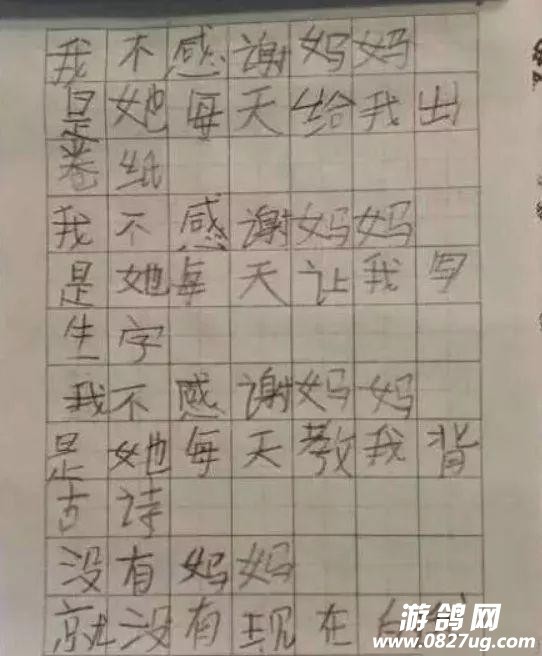 我不感谢妈妈
是她每天给我出
卷纸
我不感谢妈妈
是她每天让我写
生字
我不感谢妈妈
是她每天教我背
古诗
没有妈妈
就没有现在
游鸽网
www.0827ug.com